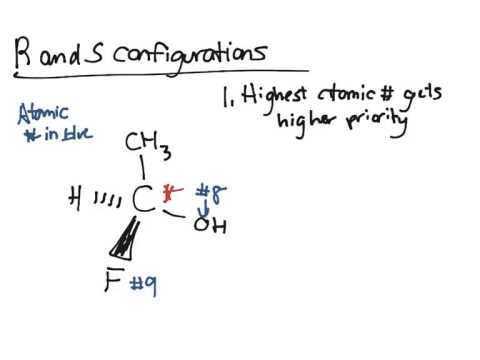 R and S configurations
1. Highest atomic # gets
higher priority
Atomic
# in blue
CH3
H C * #8
OH
F #9